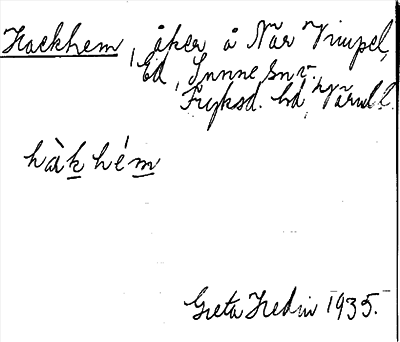 Hackhem, åker å När Vimpel,
Ed, Sunne sn v.
Fryksd. hd, Värml.
hàkhém
Greta Hedin 1935.